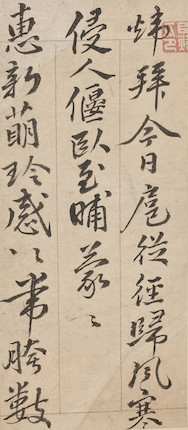 煒拜今日扈從徑歸風寒
侵人偃臥至晡蒙
惠新萌珍感〻帶胯數